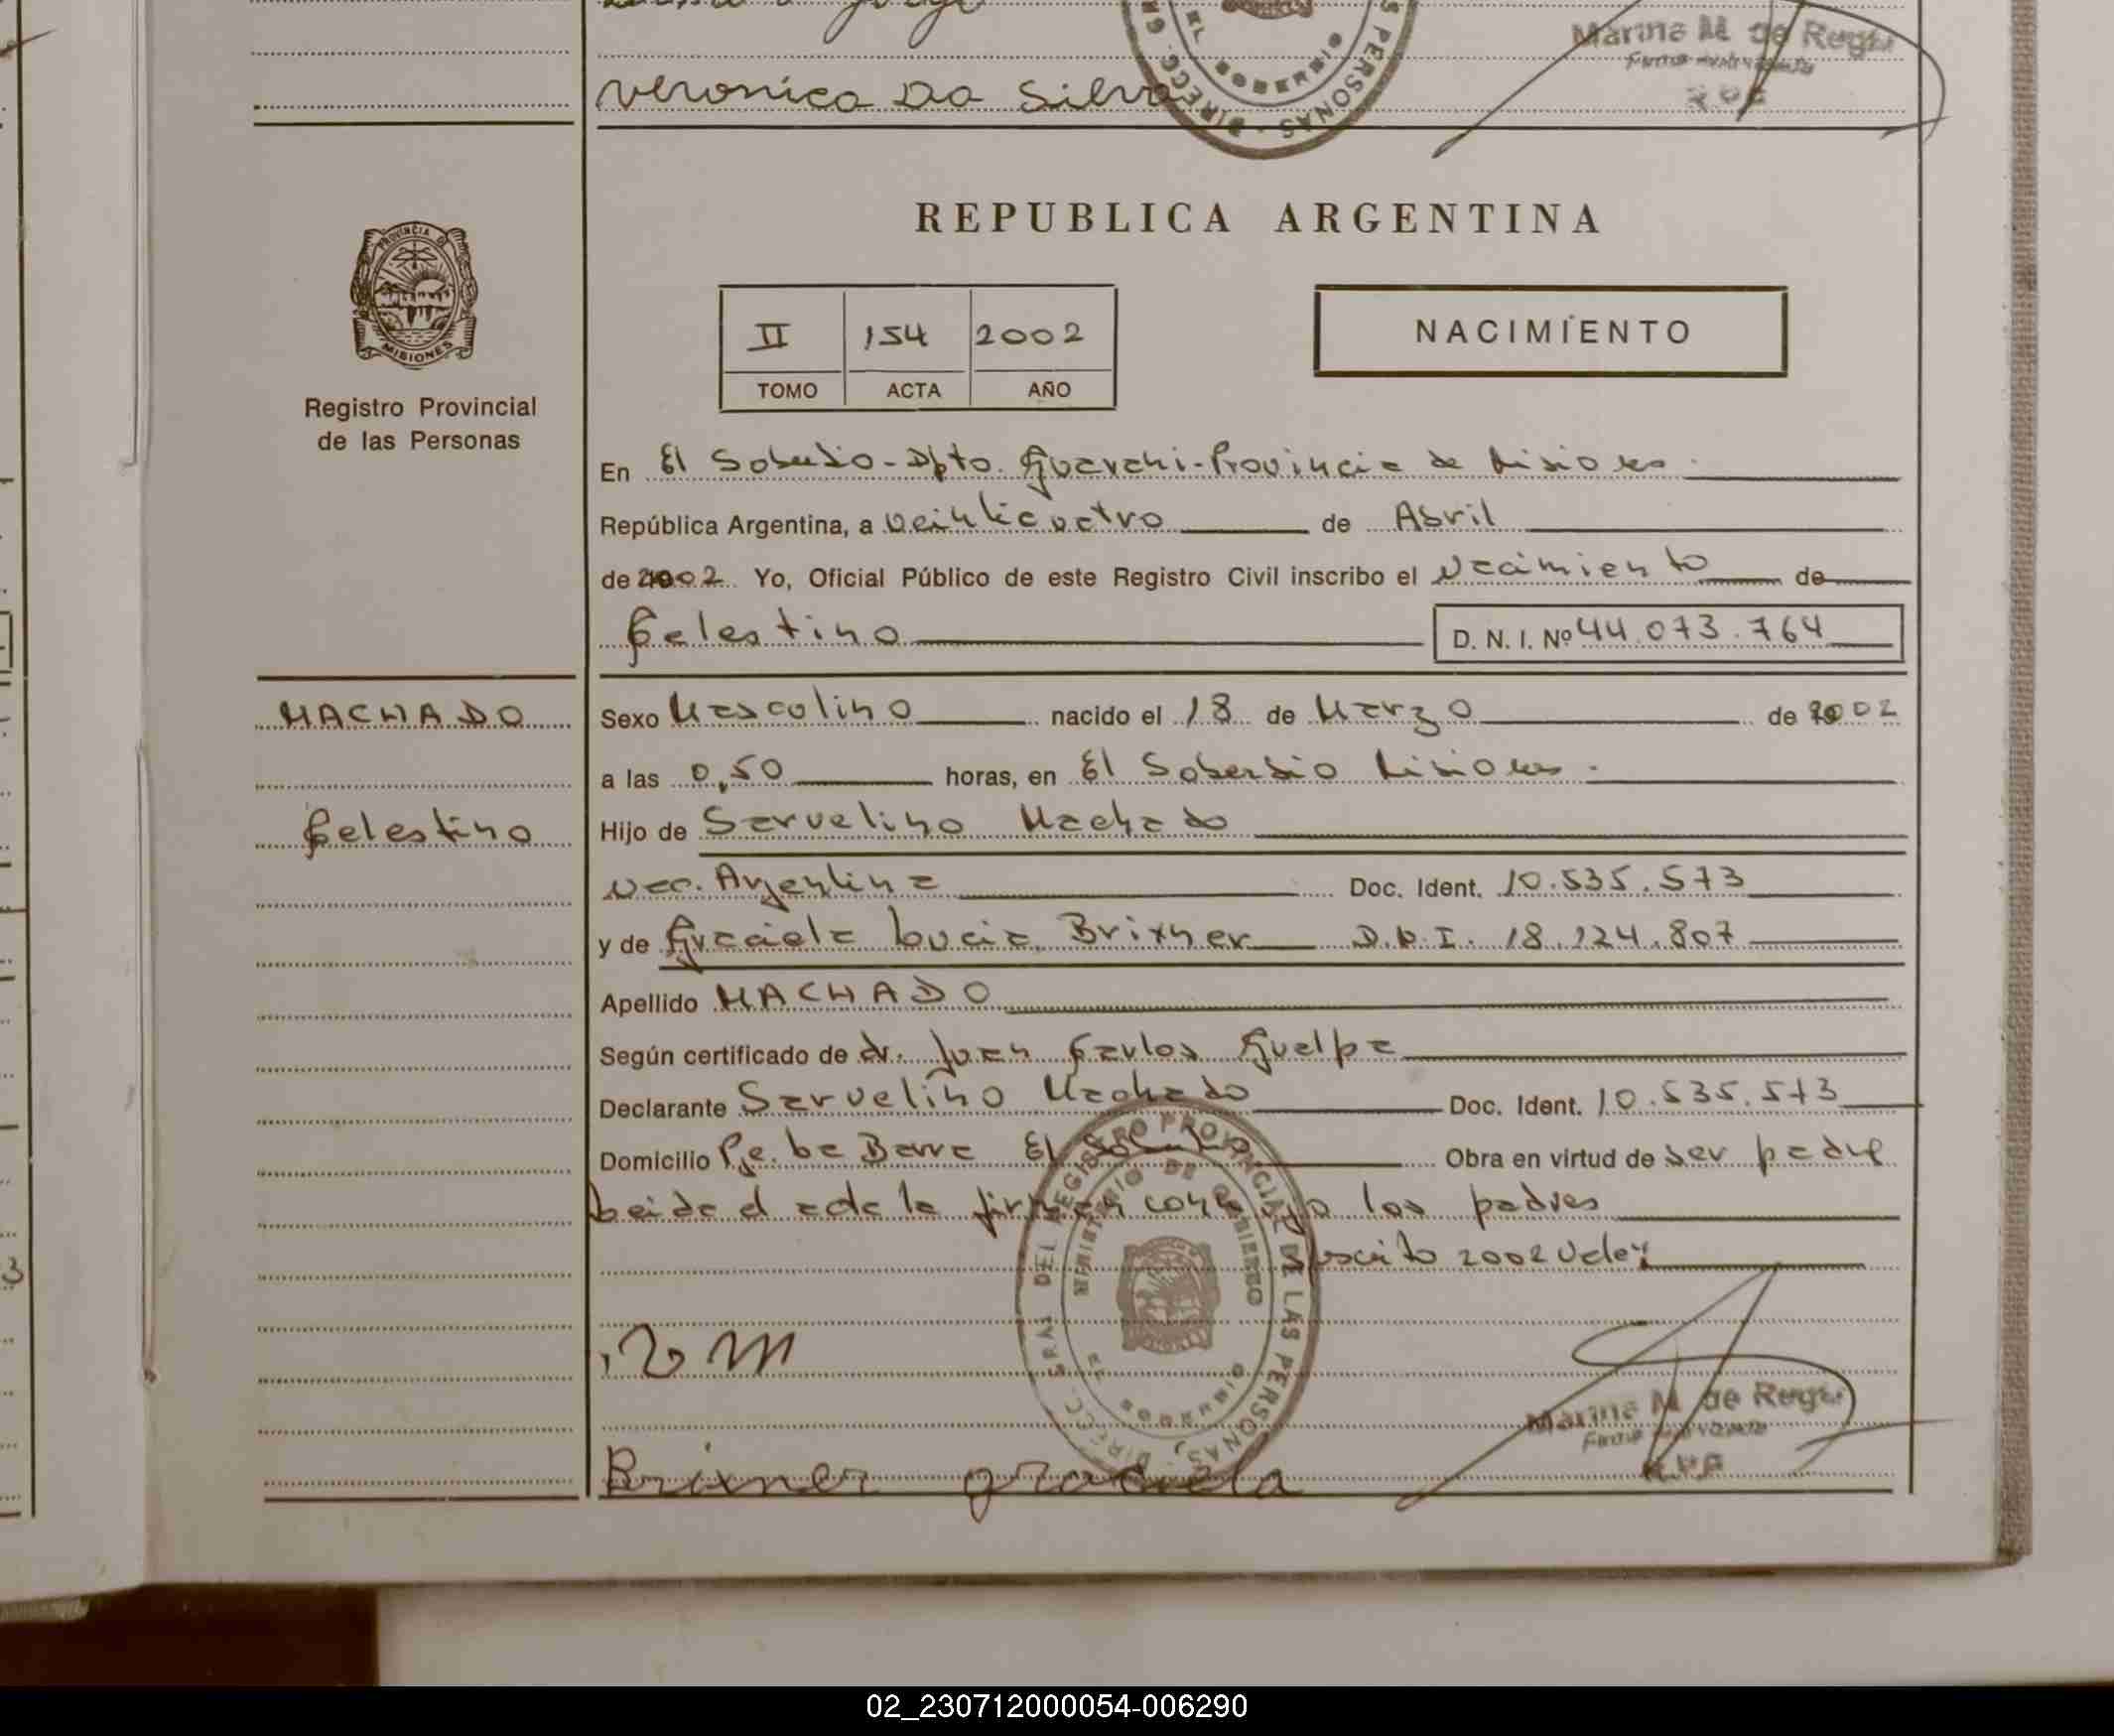 Veronica Da Silva
Marina M de Reggi
REPUBLICA ARGENTINA
PROVINCIA DE MISIONES
Registro Provincial
de las Personas
II 154 2002
TOMO ACTA AÑO
NACIMIENTO
En El Soberbio - Dpto. Guarani - Provincia de Misiones
República Argentina, a veinticuatro de Abril
de 2002 Yo, Oficial Público de este Registro Civil inscribo el Nacimiento de
Celestino D. N. I. Nº 44.073.764
MACHADO
Sexo Masculino nacido el 18 de Marzo de 2002
a las 0,50 horas, en El Soberbio Misiones.
Celestino
Hijo de Sarvelino Machado
Nac. Argentina Doc. Ident. 10.535.573
y de Graciela Lucia Brixner D.N.I. 18.124.807
Apellido MACHADO
Según certificado de dr. Juan Carlos Guelpa
Declarante Sarvelino Machado Doc. Ident. 10.535.573
Domicilio Pje. La Barra El Soberbio Obra en virtud de ser padre
Leida el acta la firman conmigo los padres
2002 Vale
REGISTRO PROVINCIAL DE LAS PERSONAS
MINISTERIO DE GOBIERNO
EL SOBERBIO
Marina M de Reggi
Brixner graciela
02_230712000054-006290